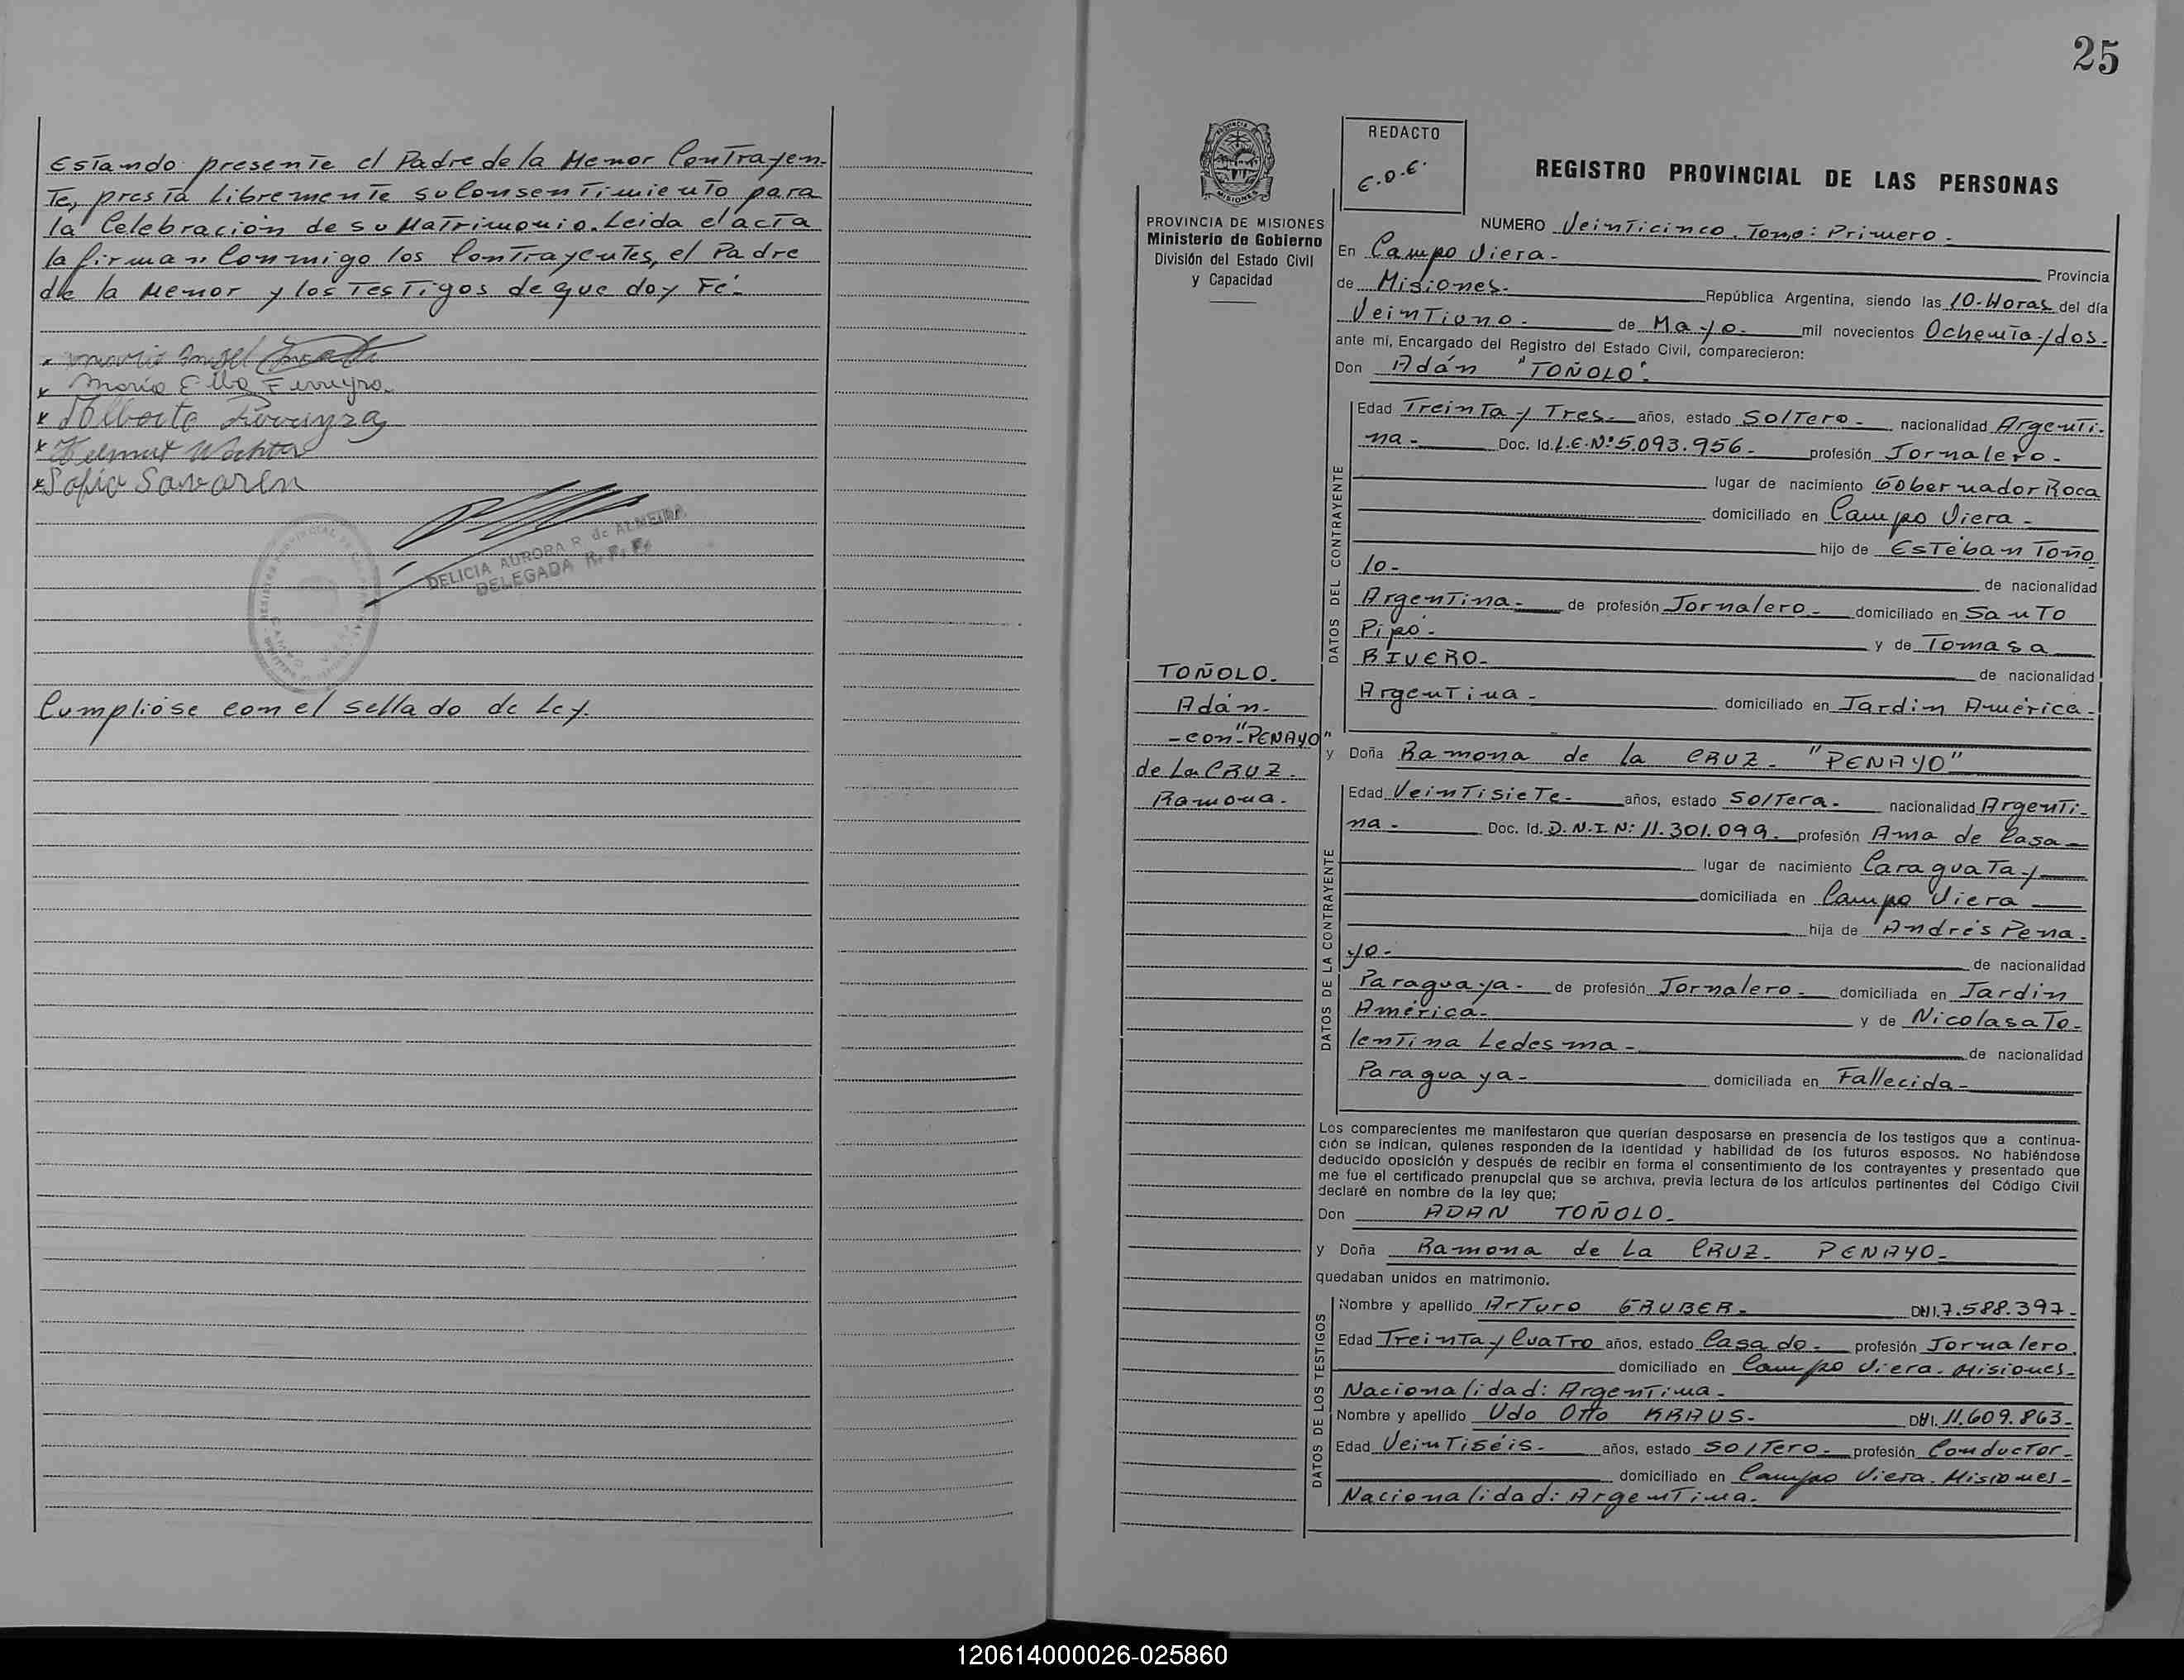 Estando presente el Padre de la Menor Contrayen-
Te, presta Libremente su Consentimiento para
la Celebración de su Matrimonio. Leida el acta
la firman Conmigo los Contrayentes, el Padre
de la Menor y los Testigos de que doy Fé.-
x Mario Angel
x María Elba Ferreyra
x Alberto Ferreyra
x Helmut Wachter
x Sofia Savaren
DELICIA AURORA R. de ALMEIDA
DELEGADA R. P. P.
Cumplióse con el sellado de Ley.
25
PROVINCIA DE MISIONES
Ministerio de Gobierno
División del Estado Civil
y Capacidad
REDACTO
E.O.E.
REGISTRO PROVINCIAL DE LAS PERSONAS
NUMERO Veinticinco. Tomo: Primero.-
En Campo Viera.- Provincia
de Misiones.- República Argentina, siendo las 10-Horas del día
Veintiuno.- de Mayo.- mil novecientos Ochenta y dos.-
ante mí, Encargado del Registro del Estado Civil, comparecieron:
Don Adán "TOÑOLO".-
DATOS DEL CONTRAYENTE
Edad Treinta y Tres.- años, estado Soltero.- nacionalidad Argenti-
na.- Doc. Id. L.E.Nº:5.093.956.- profesión Jornalero.-
lugar de nacimiento Gobernador Roca
domiciliado en Campo Viera.-
hijo de Estéban Toño
lo.- de nacionalidad
Argentina.- de profesión Jornalero.- domiciliado en Santo
Pipó.- y de Tomasa
RIVERO.- de nacionalidad
Argentina.- domiciliado en Jardín América.-
TOÑOLO.
Adán.-
-con-"PENAYO"
de La CRUZ.
Ramona.
y Doña Ramona de la CRUZ.- "PENAYO"
DATOS DE LA CONTRAYENTE
Edad Veintisiete.- años, estado Soltera.- nacionalidad Argenti-
na.- Doc. Id. D.N.I.N: 11.301.099.- profesión Ama de Casa-
lugar de nacimiento Caraguatay
domiciliada en Campo Viera
hija de Andrés Pena-
yo.- de nacionalidad
Paraguaya.- de profesión Jornalero.- domiciliada en Jardín
América.- y de Nicolasa To-
lentina Ledesma.- de nacionalidad
Paraguaya.- domiciliada en Fallecida.-
Los comparecientes me manifestaron que querían desposarse en presencia de los testigos que a continua-
ción se indican, quienes responden de la identidad y habilidad de los futuros esposos. No habiéndose
deducido oposición y después de recibir en forma el consentimiento de los contrayentes y presentado que
me fue el certificado prenupcial que se archiva, previa lectura de los artículos pertinentes del Código Civil
declaré en nombre de la ley que;
Don ADAN TOÑOLO.-
y Doña Ramona de La CRUZ.- PENAYO.-
quedaban unidos en matrimonio.
DATOS DE LOS TESTIGOS
Nombre y apellido Arturo GRUBER.- DNI.7.588.397.-
Edad Treinta y Cuatro años, estado Casado.- profesión Jornalero.
domiciliado en Campo Viera. Misiones.-
Nacionalidad: Argentina.-
Nombre y apellido Udo Otto KRAUS.- DNI. 11.609.863.-
Edad Veintiséis.- años, estado Soltero.- profesión Conductor.-
domiciliado en Campo Viera. Misiones.-
Nacionalidad: Argentina.-
120614000026-025860